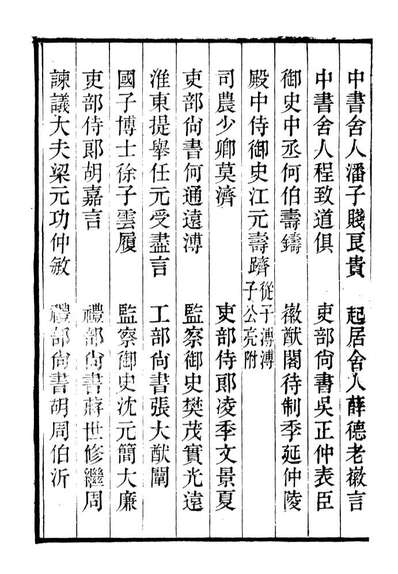 中書舍人潘子賤良貴　起居舍人薛德老徽言
中書舍人程致道俱　吏部尚書吳正仲表臣
御史中丞何伯壽鑄　徽猷閣待制季延仲陵
殿中侍御史江元壽躋從子溥溥子公亮附
司農少卿莫濟　吏部侍郎凌季文景夏
吏部尚書何通遠溥　監察御史樊茂實光遠
淮東提舉任元受盡言　工部尚書張大猷闡
國子博士徐子雲履　監察御史沈元簡大廉
吏部侍郎胡嘉言　禮部尚書蔣世修繼周
諫議大夫梁元功仲敏　禮部尚書胡周伯沂